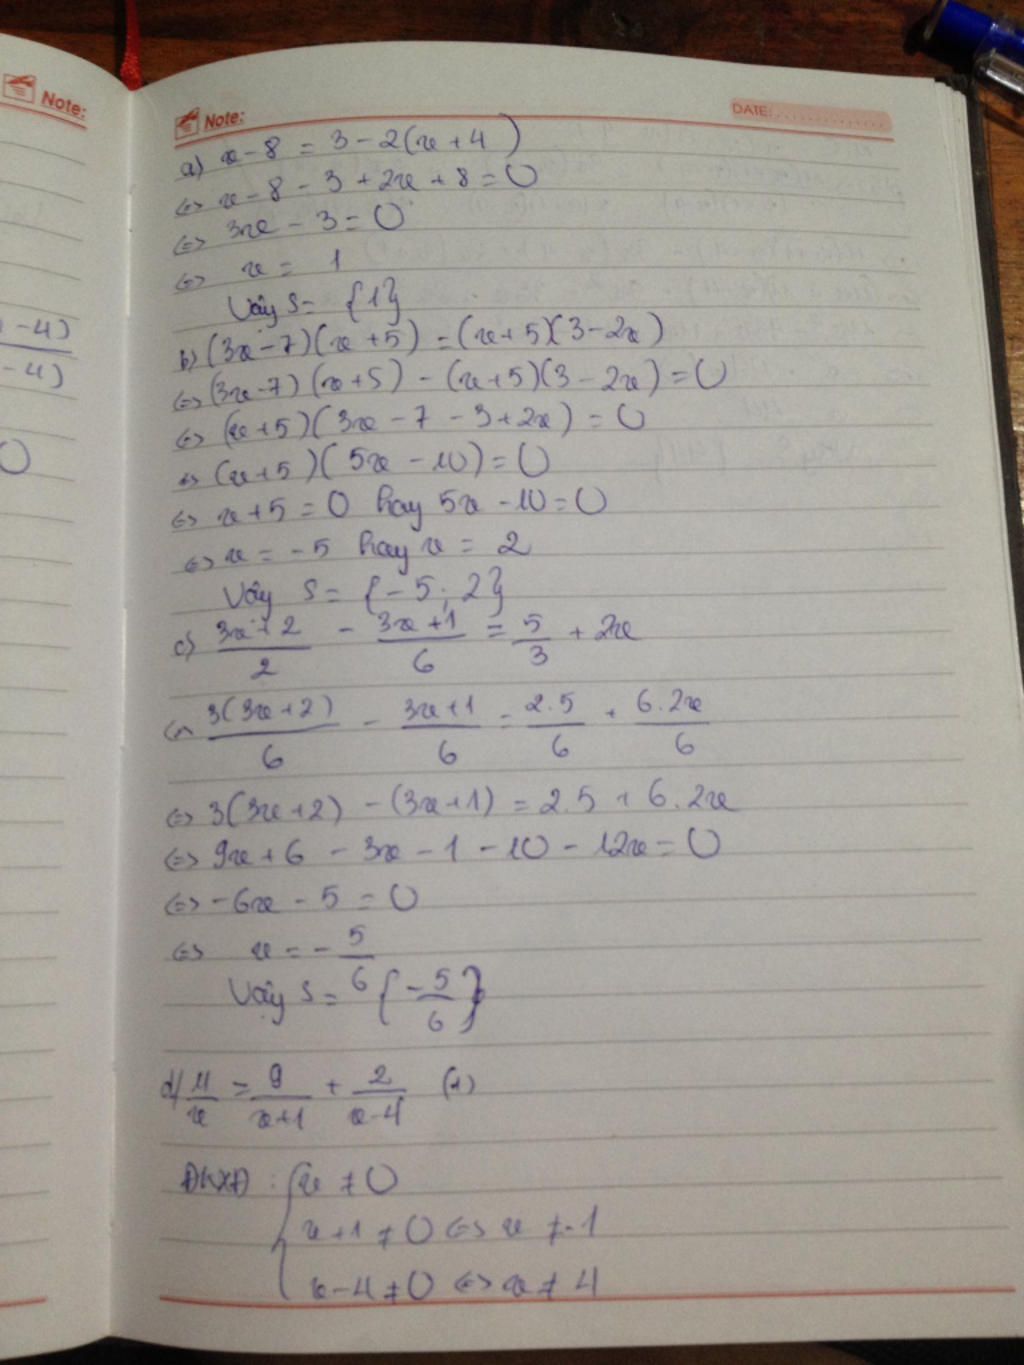 Note:
Note:
DATE:
a) x - 8 = 3 - 2(x + 4)
<=> x - 8 - 3 + 2x + 8 = 0
<=> 3x - 3 = 0
<=> x = 1
Vậy S = {1}
b) (3x - 7)(x + 5) = (x + 5)(3 - 2x)
<=> (3x - 7)(x + 5) - (x + 5)(3 - 2x) = 0
<=> (x + 5)(3x - 7 - 3 + 2x) = 0
<=> (x + 5)(5x - 10) = 0
<=> x + 5 = 0 hay 5x - 10 = 0
<=> x = -5 hay x = 2
Vậy S = {-5; 2}
c) (3x + 2)/2 - (3x + 1)/6 = 5/3 + 2x
<=> 3(3x + 2)/6 - (3x + 1)/6 = 2.5/6 + 6.2x/6
<=> 3(3x + 2) - (3x + 1) = 2.5 + 6.2x
<=> 9x + 6 - 3x - 1 - 10 - 12x = 0
<=> -6x - 5 = 0
<=> x = -5/6
Vậy S = {-5/6}
d) 11/x = 9/(x+1) + 2/(x-4) (1)
ĐKXĐ: { x ≠ 0
x + 1 ≠ 0 <=> x ≠ -1
x - 4 ≠ 0 <=> x ≠ 4
- 4)
- 4)
0